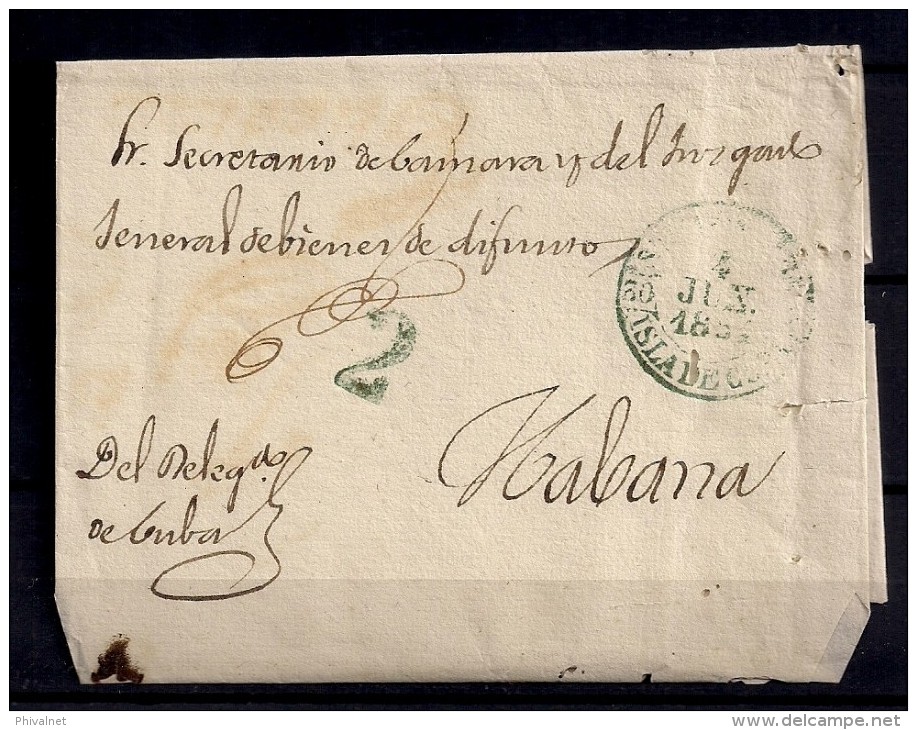 Sr. Secretario de Camara y del Juzgado
Jeneral de bienes de difuntos
4
JUN.
185
ISLA DE CUBA
2
Del Delegdo.
de Cuba
Habana
Phivalnet
www.delcampe.net